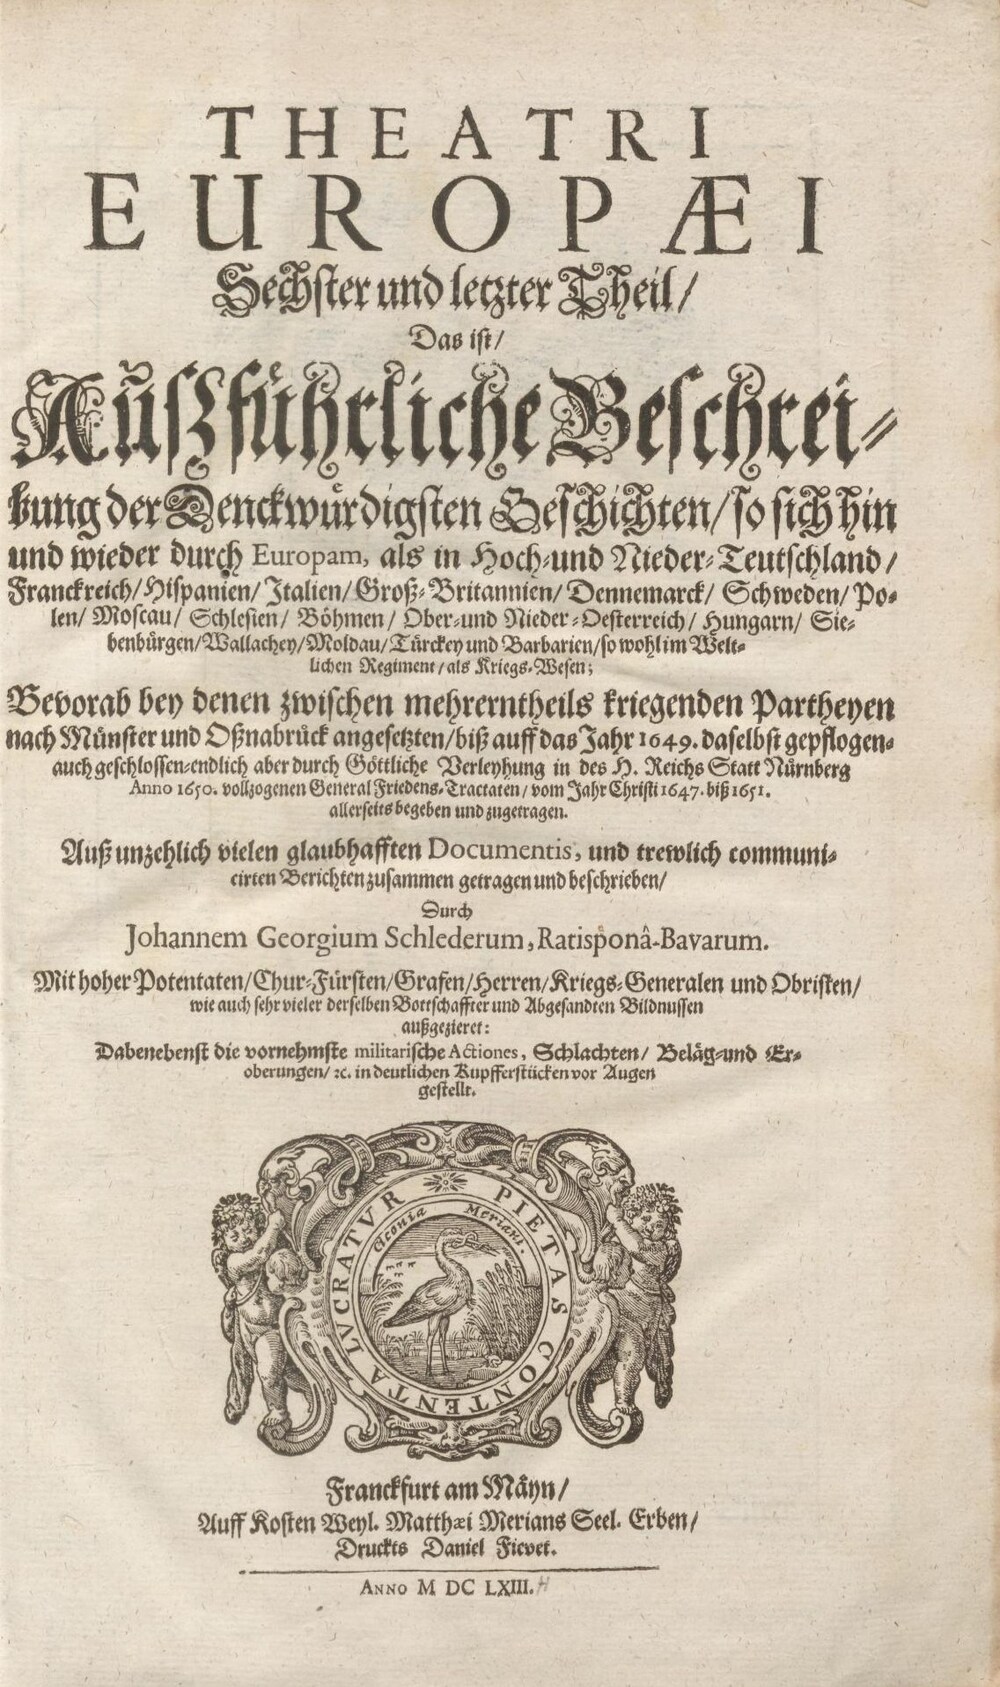 THEATRI
EUROPÆI
Sechster und letzter Theil/
Das ist/
Außführliche Beschrei-
bung der Denckwürdigsten Geschichten/ so sich hin
und wieder durch Europam, als in Hoch-und Nieder-Teutschland/
Franckreich/Hispanien/Italien/Groß-Britannien/Dennemarck/Schweden/Po-
len/ Moscau/ Schlesien/ Böhmen/ Ober-und Nieder-Oesterreich/ Hungarn/ Sie-
benbürgen/Wallachey/Moldau/Türckey und Barbarien/so wohl im Welt-
lichen Regiment/als Kriegs-Wesen;
Bevorab bey denen zwischen mehrerntheils kriegenden Partheyen
nach Münster und Oßnabrück angesetzten/biß auff das Jahr 1649. daselbst gepflogen-
auch geschlossen-endlich aber durch Göttliche Verleyhung in des H. Reichs Statt Nürnberg
Anno 1650. vollzogenen General Friedens-Tractaten/vom Jahr Christi 1647. biß 1651.
allerseits begeben und zugetragen.
Auß unzehlich vielen glaubhafften Documentis, und trewlich communi-
cirten Berichten zusammen getragen und beschrieben/
Durch
Johannem Georgium Schlederum, Ratisponâ-Bavarum.
Mit hoher Potentaten/Chur-Fürsten/Grafen/Herren/Kriegs-Generalen und Obristen/
wie auch sehr vieler derselben Bottschaffter und Abgesandten Bildnussen
außgezieret:
Dabenebenst die vornehmste militarische Actiones, Schlachten/ Beläg-und Er-
oberungen/ ꝛc. in deutlichen Kupfferstücken vor Augen
gestellt.
PIETAS CONTENTA LVCRATVR
Ciconia Meriani.
Franckfurt am Mäyn/
Auff Kosten Weyl. Matthæi Merians Seel. Erben/
Druckts Daniel Fievet.
ANNO M DC LXIII.